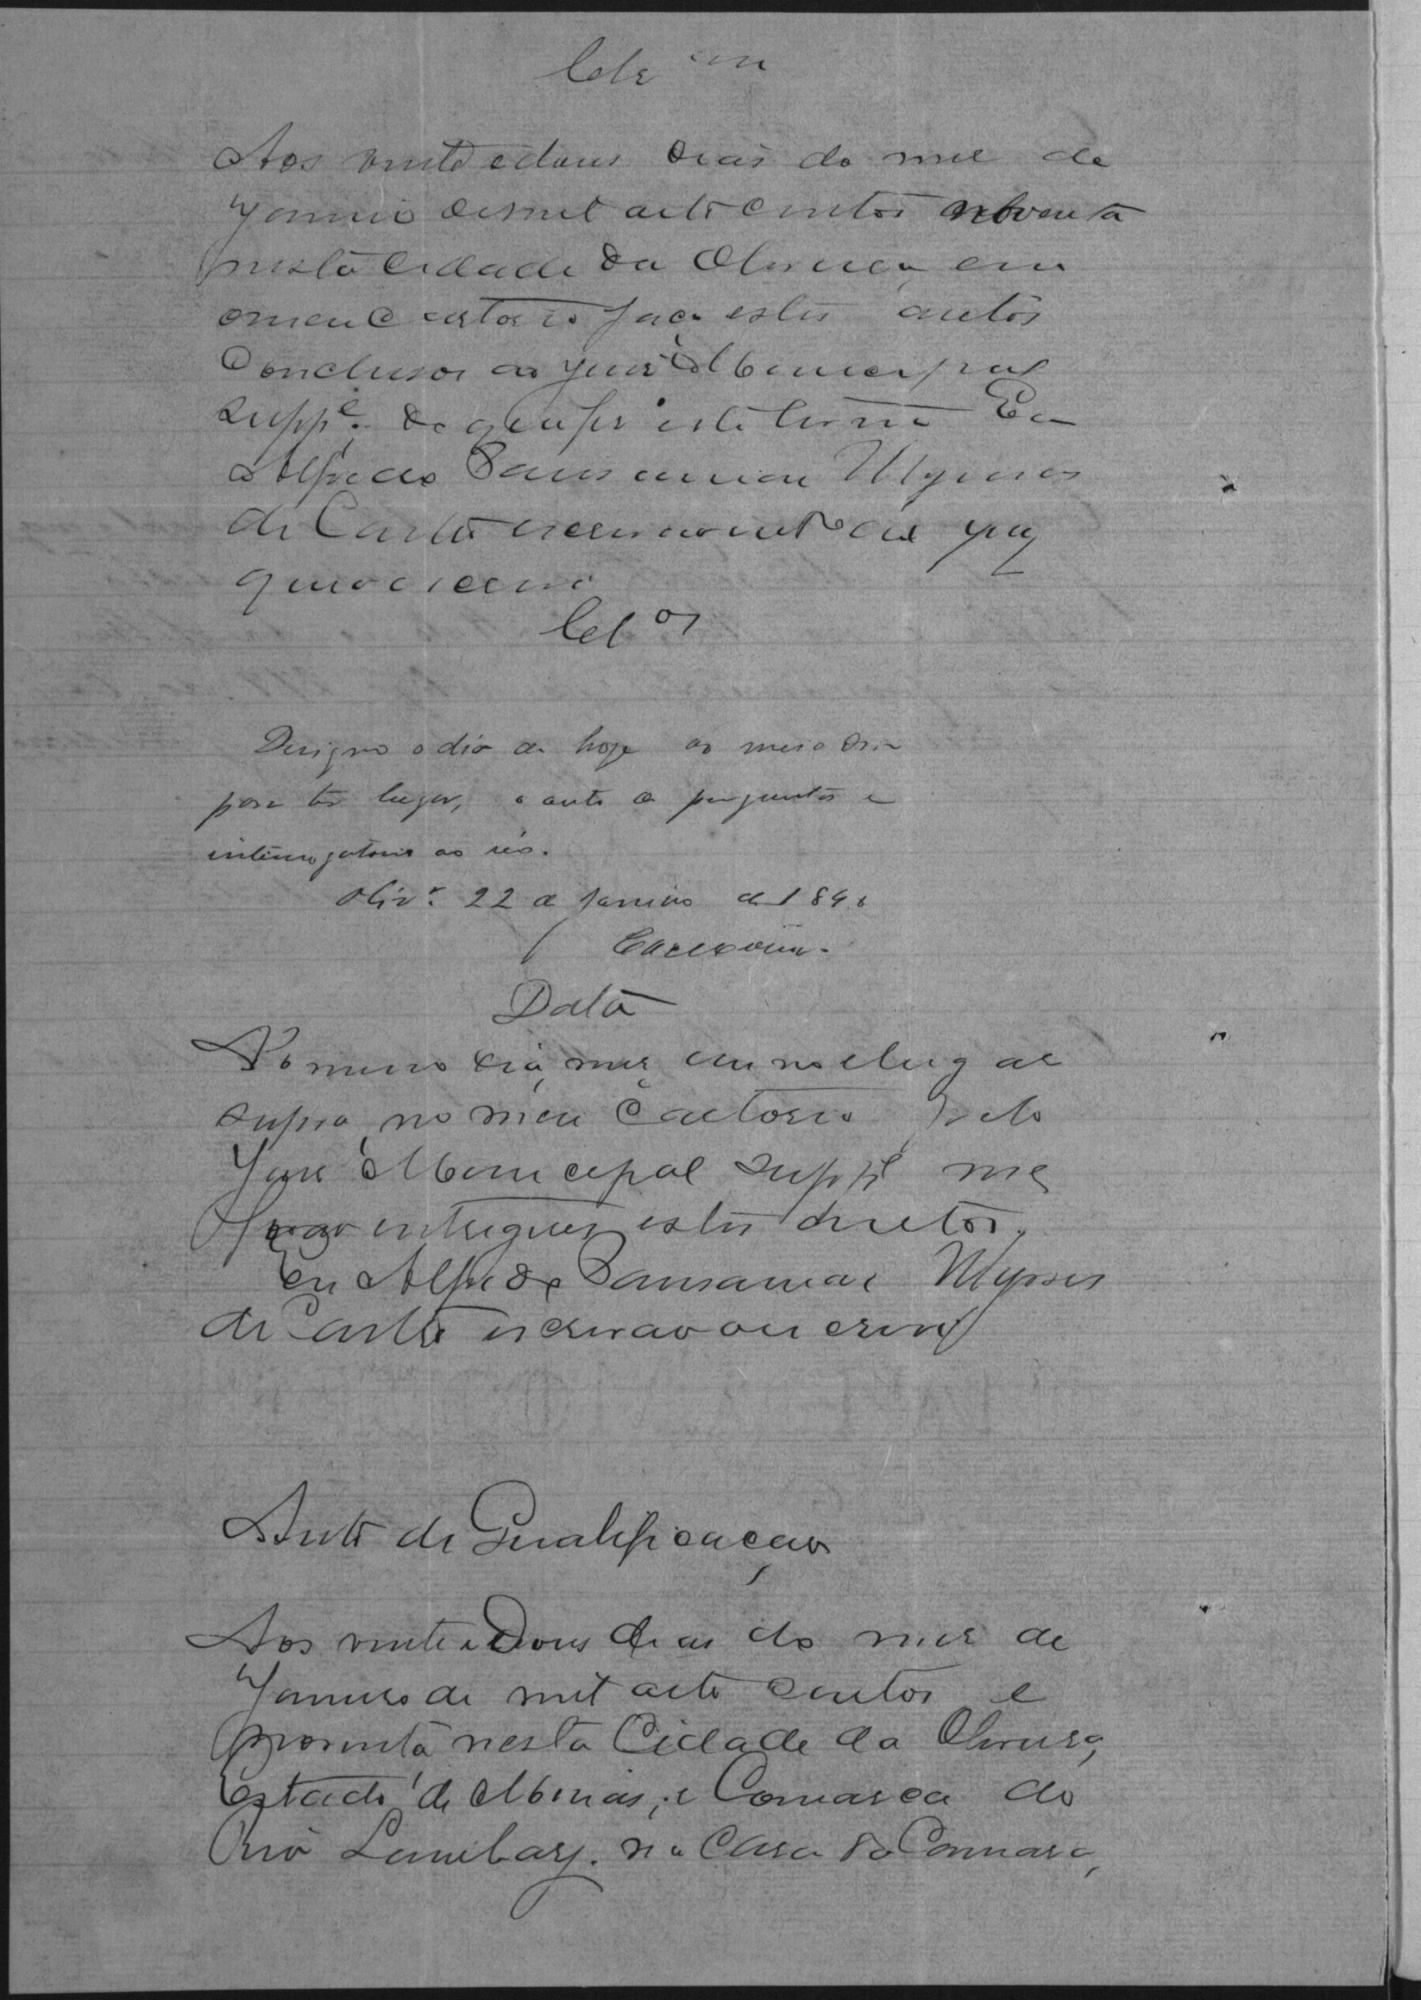 Clsam
Aos vinte e dous dias do mez de
Janeiro de mil oito centos noventa
nesta Cidade da Oliveira, em
o meu Cartorio faço estes autos
Conclusos ao Juiz Municipal
Suppe. do que fiz este termo Eu
Alfredo Pausanias Ulysses
de Castro escrivão
que o escrevi
Clos
Designo o dia de hoje ao meio dia
para ter lugar, o auto de perguntas e
interrogatorio ao réo.
Olivra. 22 de Janeiro de 1890
Data
No mesmo dia, mez anno e lugar
supra, no meu Cartorio pelo
Juiz Municipal Suppe. me
forão entregues estes autos.
Eu Alfredo Pausanias Ulysses
de Castro escrivão que escrevi
Auto de Qualificação
Aos vinte e dous dias do mez de
Janeiro de mil oito centos e
noventa nesta Cidade da Oliveira,
Estado de Minas, e Comarca do
Rio Lambary. na Casa da Camara,